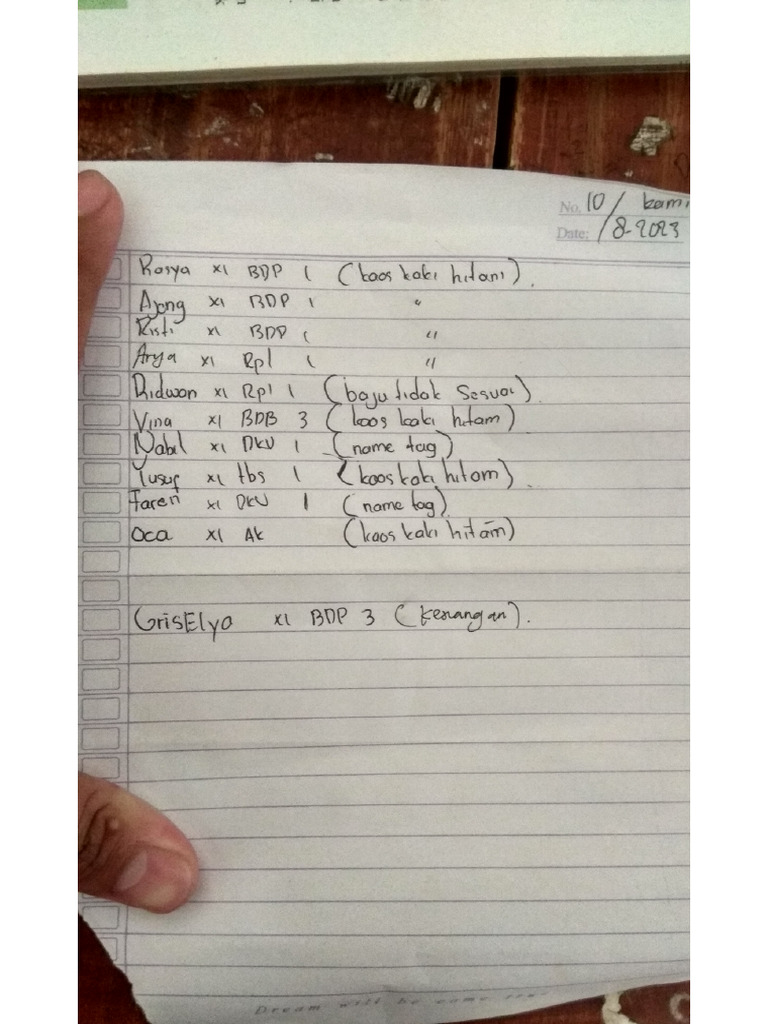 No. 10 / kami
Date: /8-2023
Rasya XI BDP 1 (kaos kaki hitam).
Ajeng XI BDP 1 "
Risti XI BDP 1 "
Arya XI Rpl 1 "
Ridwan XI Rpl 1 (baju tidak sesuai).
Vina XI BDB 3 (kaos kaki hitam)
Nabil XI DKV 1 (name tag)
Yusuf XI tbs 1 (kaos kaki hitam).
Faren XI DKV 1 (name tag)
Oca XI AK (kaos kaki hitam)
GrisElya XI BDP 3 (kenangan).
Dream will be come tru